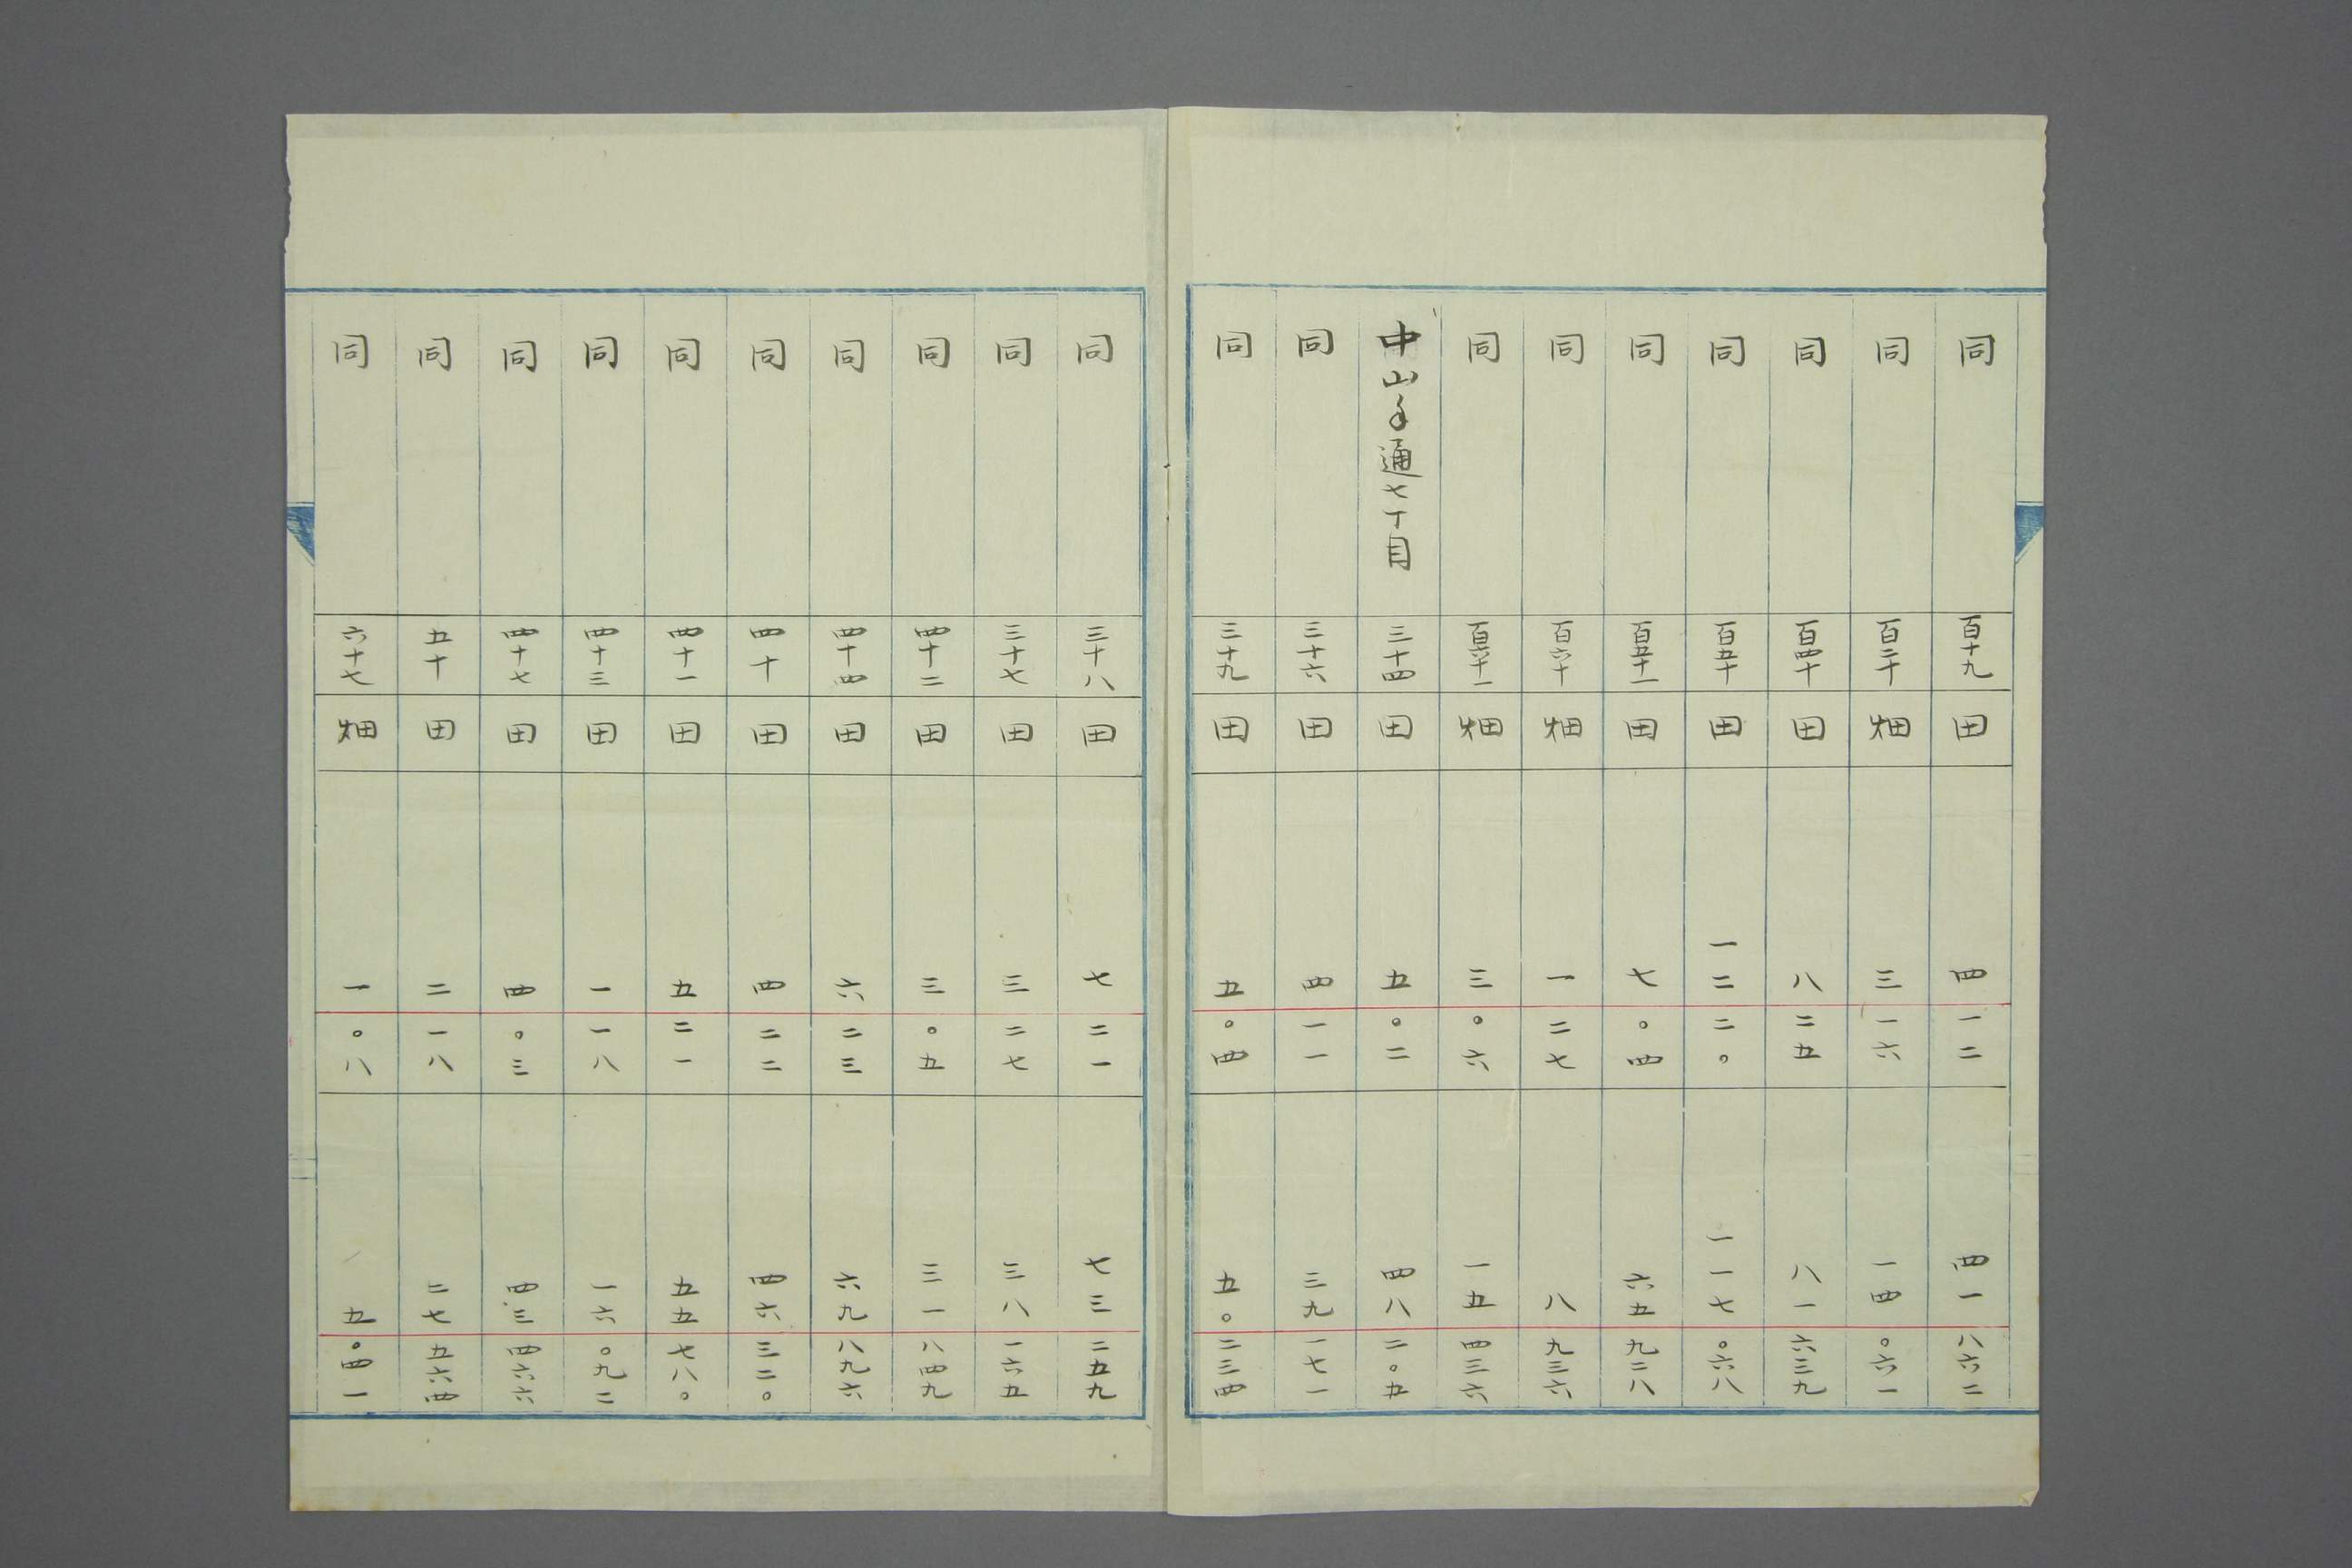 同 百十九 田 四 一二 四一 八六二
同 百二十 畑 三 一六 一四 〇六一
同 百四十 田 八 二五 八一 六三九
同 百五十 田 一二 二〇 一一七 〇六八
同 百五十一 田 七 〇四 六五 九二八
同 百六十 畑 一 二七 八 九三六
同 百六十一 畑 三 〇六 一五 四三六
中山手通七丁目 三十四 田 五 〇二 四八 二〇五
同 三十六 田 四 一一 三九 一七一
同 三十九 田 五 〇四 五〇 二三四
同 三十八 田 七 二一 七三 二五九
同 三十七 田 三 二七 三八 一六五
同 四十二 田 三 〇五 三一 八四九
同 四十四 田 六 二三 六九 八九六
同 四十 田 四 二二 四六 三二〇
同 四十一 田 五 二一 五五 七八〇
同 四十三 田 一 一八 一六 〇九二
同 四十七 田 四 〇三 四三 四六六
同 五十 田 二 一八 二七 五六四
同 六十七 畑 一 〇八 五 〇四一